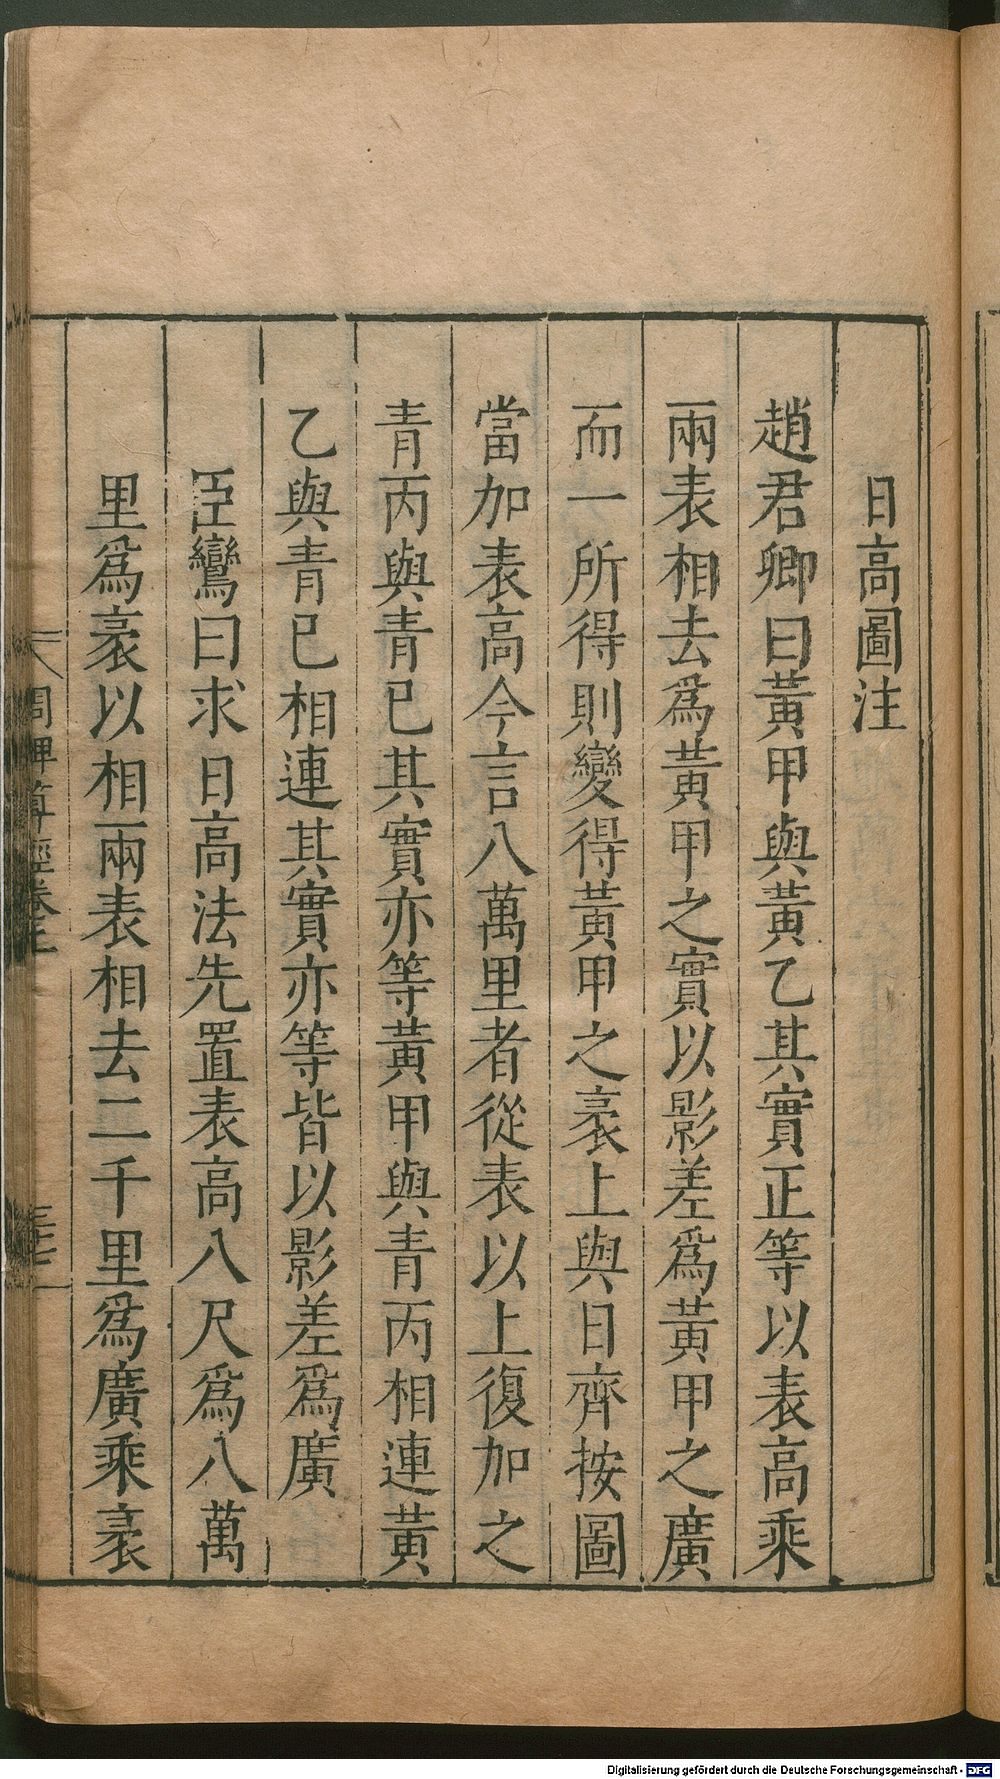 日高圖注
趙君卿曰黃甲與黃乙其實正等以表高乘
兩表相去爲黃甲之實以影差爲黃甲之廣
而一所得則變得黃甲之袤上與日齊按圖
當加表高今言八萬里者從表以上復加之
青丙與青已其實亦等黃甲與青丙相連黃
乙與青已相連其實亦等皆以影差爲廣
臣鸞曰求日高法先置表高八尺爲八萬
里爲袤以相兩表相去二千里爲廣乘袤
周髀算經卷上
三十七
Digitalisierung gefördert durch die Deutsche Forschungsgemeinschaft - DFG